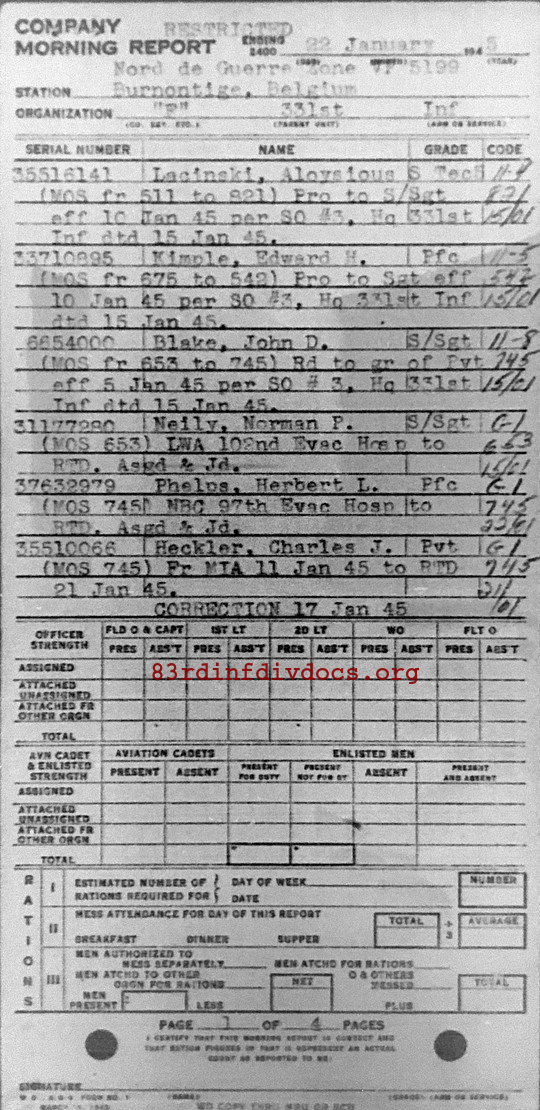 COMPANY
MORNING REPORT
RESTRICTED
ENDING 2400 22 January 1945
Nord de Guerre Zone VP 5199
(DAY) (MONTH) (YEAR)
STATION Burnontige, Belgium
ORGANIZATION "F" 331st Inf
(CO. BTY. ETC.) (PARENT UNIT) (ARM OR SERVICE)
SERIAL NUMBER NAME GRADE CODE
35516141 Lacinski, Aloysious S Tec5 11-4
(MOS fr 511 to 821) Pro to S/Sgt 821
eff 10 Jan 45 per SO #3, Hq 331st 15/01
Inf dtd 15 Jan 45.
33710895 Kimple, Edward H. Pfc 11-5
(MOS fr 675 to 542) Pro to Sgt eff 542
10 Jan 45 per SO #3, Hq 331st Inf 15/01
dtd 15 Jan 45.
6654000 Blake, John D. S/Sgt 11-8
(MOS fr 653 to 745) Rd to gr of Pvt 745
eff 5 Jan 45 per SO # 3, Hq 331st 15/01
Inf dtd 15 Jan 45.
31177280 Neily, Norman P. S/Sgt G-1
(MOS 653) LWA 102nd Evac Hosp to 653
RTD. Asgd & Jd. 15/01
37632979 Phelps, Herbert L. Pfc G-1
(MOS 745) NBC 97th Evac Hosp to 745
RTD. Asgd & Jd. 22/01
35510066 Heckler, Charles J. Pvt G-1
(MOS 745) Fr MIA 11 Jan 45 to RTD 745
21 Jan 45. 21/01
CORRECTION 17 Jan 45
OFFICER STRENGTH FLD O & CAPT 1ST LT 2D LT WO FLT O
PRES ABS'T PRES ABS'T PRES ABS'T PRES ABS'T PRES ABS'T
ASSIGNED
83rdinfdivdocs.org
ATTACHED UNASSIGNED
ATTACHED FR OTHER ORGN
TOTAL
AVN CADET & ENLISTED STRENGTH AVIATION CADETS ENLISTED MEN
PRESENT ABSENT PRESENT FOR DUTY PRESENT NOT FOR DY ABSENT PRESENT AND ABSENT
ASSIGNED
ATTACHED UNASSIGNED
ATTACHED FR OTHER ORGN
TOTAL
RATIONS
I ESTIMATED NUMBER OF RATIONS REQUIRED FOR DAY OF WEEK DATE NUMBER
II MESS ATTENDANCE FOR DAY OF THIS REPORT TOTAL ÷ 3 AVERAGE
BREAKFAST DINNER SUPPER
III MEN AUTHORIZED TO MESS SEPARATELY MEN ATCHD FOR RATIONS
MEN ATCHD TO OTHER ORGN FOR RATIONS NET O & OTHERS MESSED TOTAL
MEN PRESENT LESS PLUS
PAGE 1 OF 4 PAGES
I CERTIFY THAT THIS MORNING REPORT IS CORRECT AND
THAT RATION FIGURES IN PART III REPRESENT AN ACTUAL
COUNT AS REPORTED TO ME:
SIGNATURE
W D , A G O FORM NO. 1 (NAME) (GRADE) (ARM OR SERVICE)
MARCH 1, 1943